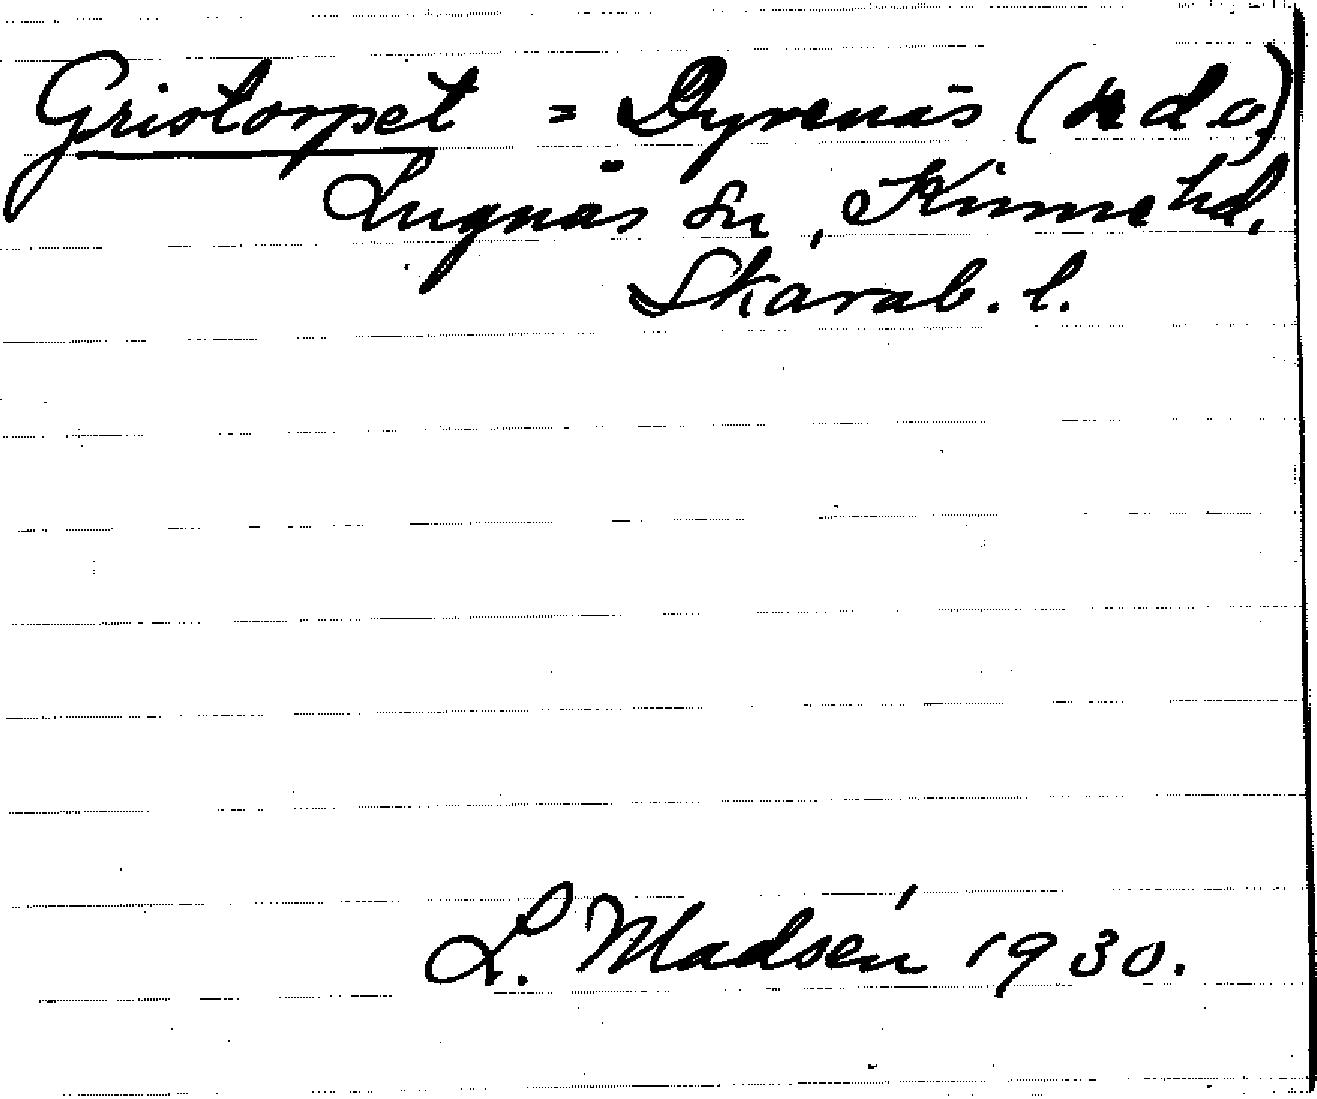 Gristorpet = Dyrenäs (se d.o)
Lugnås sn, Kinne hd.
Skarab. l.
L. Madsén 1930.